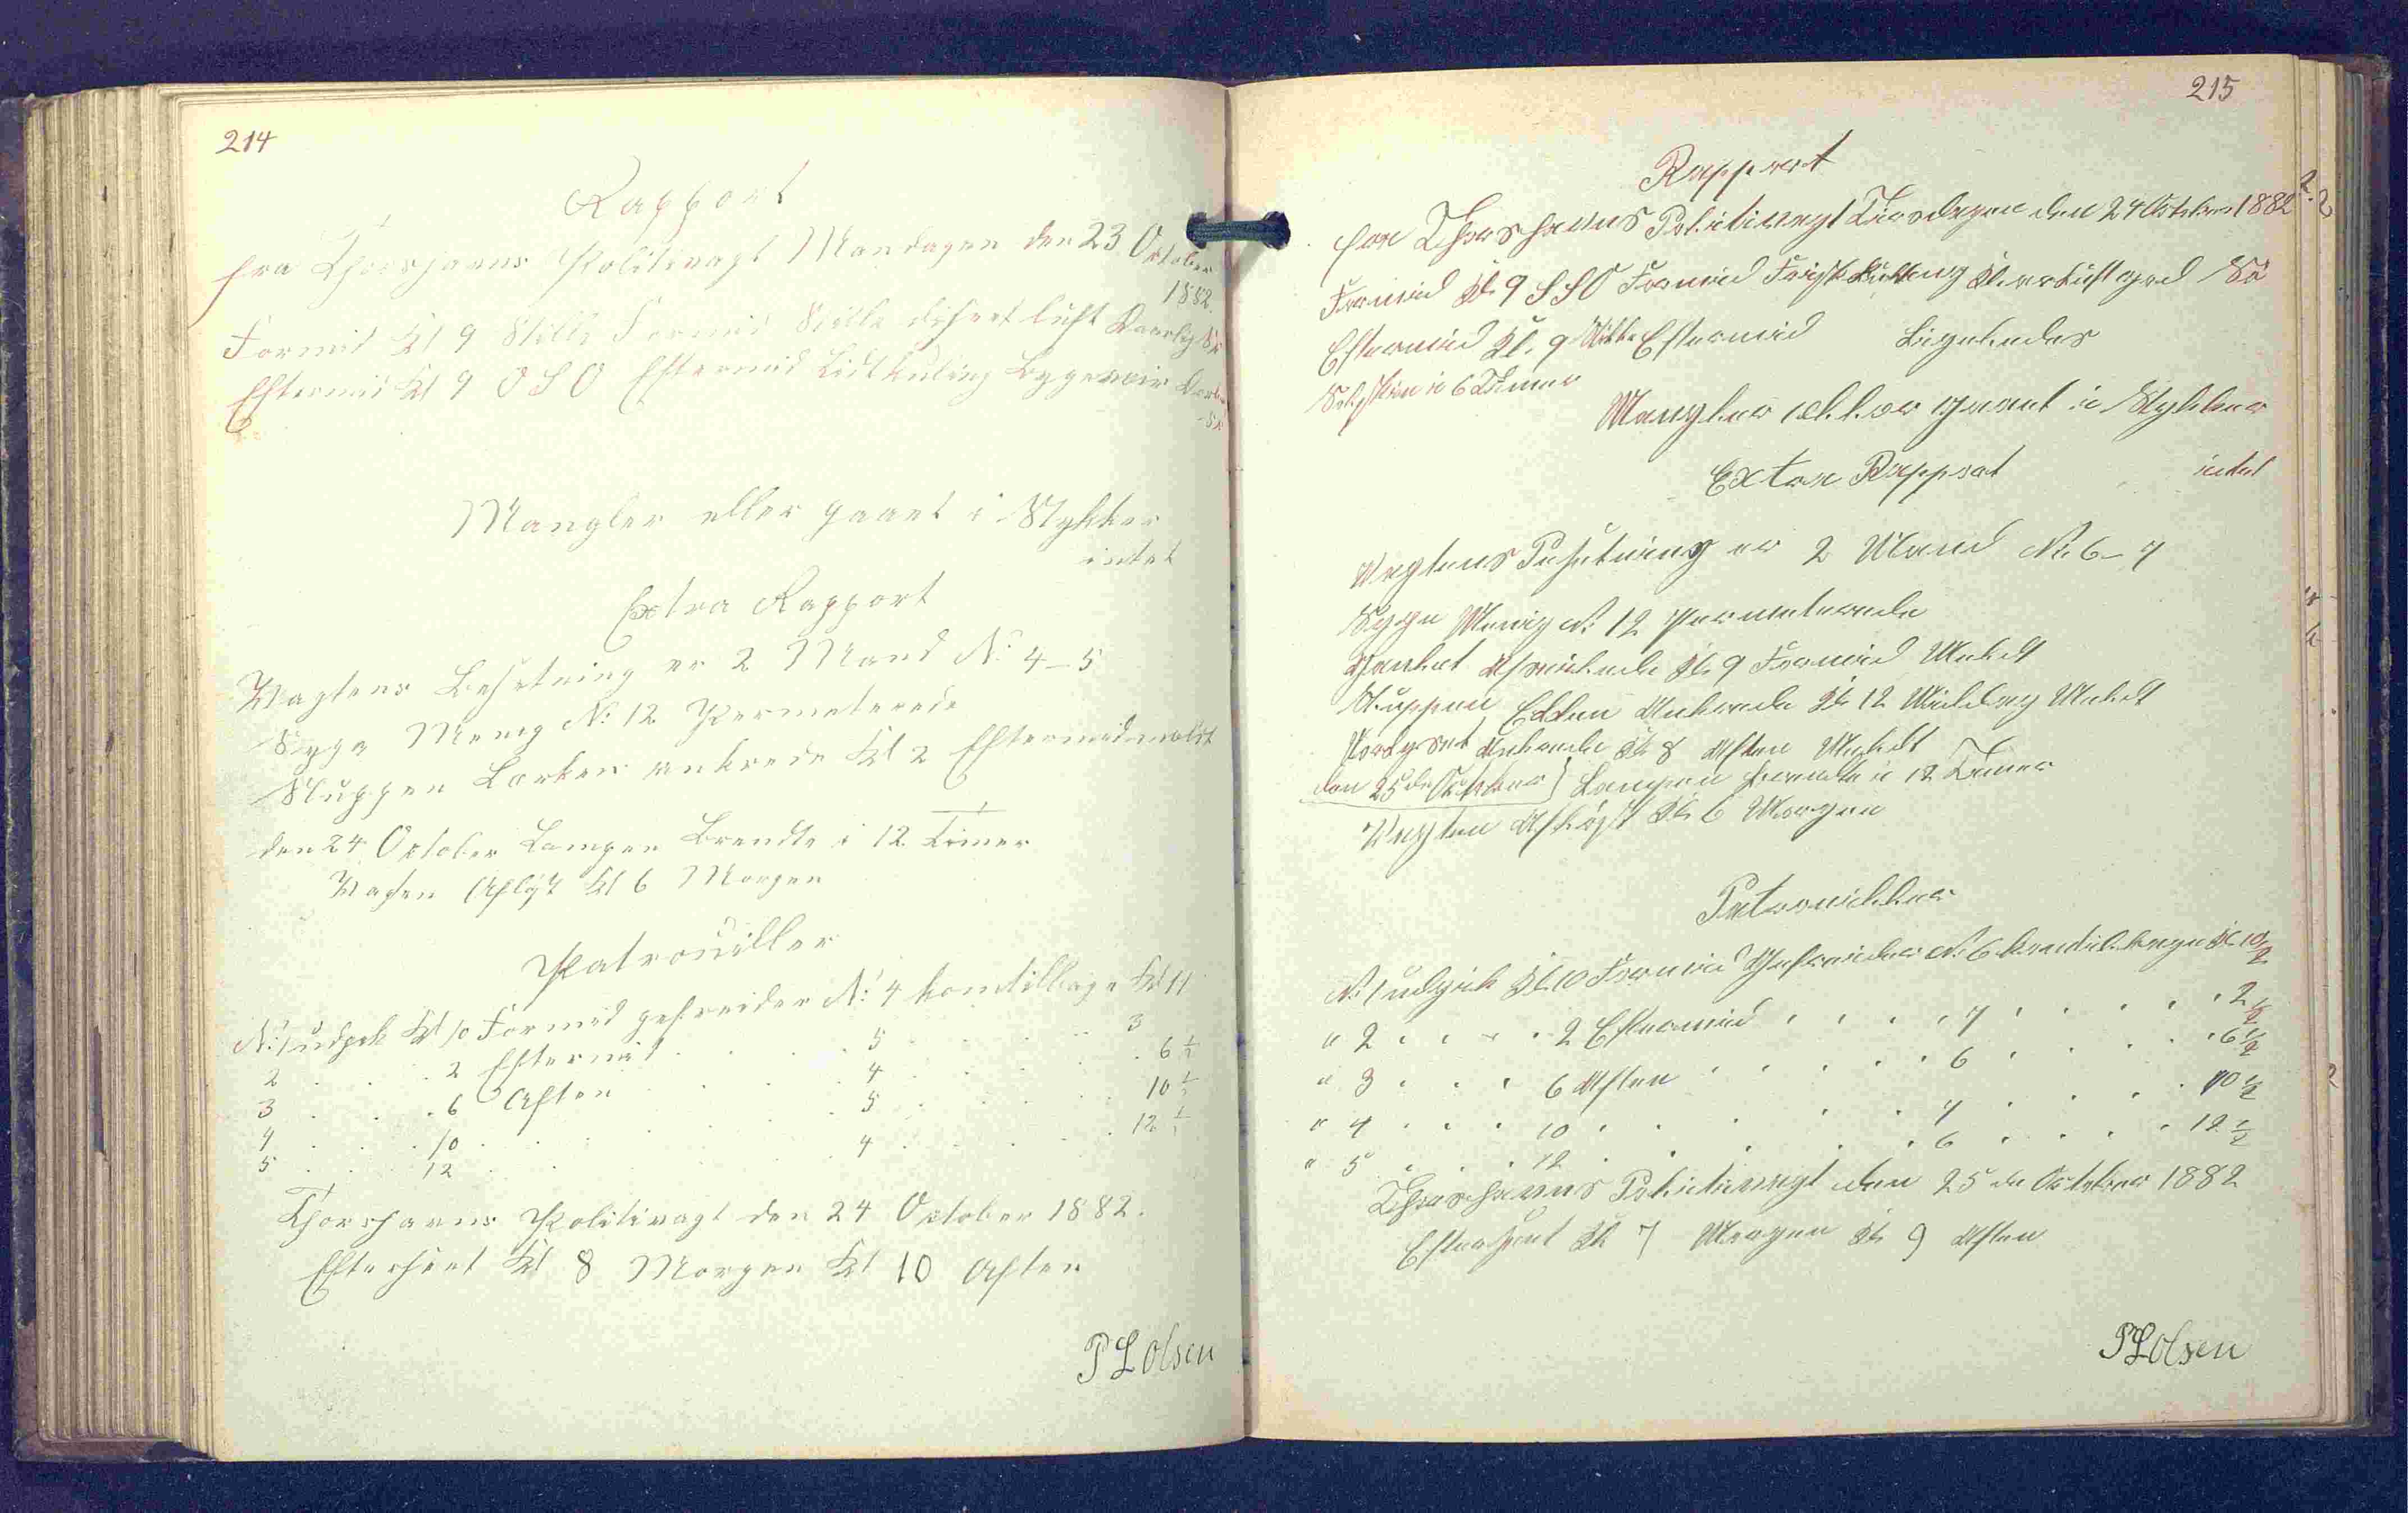 214
Rapport
fra Thorshavns Politivagt Mandagen den 23 October
1882.
Formid Kl 9 Stille Formid Stille diset luft Daarlig Sø
Eftermid Kl 9 OSO Eftermid Lidt kuling Bygeveir
Mangler eller gaaet i Stykker
intet
Extra Rapport
Vagtens Besetning er 2 Mand No 4-5
Syge Menig No 12 Permeterede
Sluppen Lærken ankrede Kl 2 Eftermid
den 24 October Lampen Brendte i 12 Timer
Afløst Kl 6 Morgen
Patrouiller
No 1 udgek Kl 10 Formid gefreider No 4 komtilbage Kl 11
2 . . . 2 Eftermid . . . . 5 . . . . 3
3 . . . 6 Aften . . . . 4 . . . . 6 1/2
4 . . . 10 . . . . 5 . . . . 10 1/2
5 . . . 12 . . . . 4 . . . . 12 1/2
Thorshavns Politivagt den 24 October 1882.
Efterseet Kl 8 Morgen Kl 10 Aften
P L Olsen
215
Rapport
fra Thorshavns Politivagt Tirsdagen den 24 October 1882
Formid Kl. 9 SSO Formid Frisk Kuling Klar Luft god Sø
Eftermid Kl. 9 Stille Eftermid Ligeledes
Solskin i 6 Timer
Mangler eller gaaet i Stykker
Extra Rapport intet
Vagtens Besetning er 2 Mand No 6-7
Syge Menig No 12 Permeterede
Afseilede Kl 9 Formid
Sluppen Ellen Ankrede Kl 12 Middag
Ankrede Kl 8 Aften
den 25de October Lampen brendte i 12 Timer
Vagten Afløst Kl 6 Morgen
Patrouiller
No 1 udgik Kl 10 Formid Gefreider No 6 komtilbage Kl 10 1/2
" 2 . . . . 2 Eftermid . . . . 7 . . . . 2 1/2
" 3 . . . 6 Aften . . . . 6 . . . . 6 1/2
" 4 . . . 10 . . . . 7 . . . . 10 1/2
" 5 . . . 12 . . . . 6 . . . . 12 1/2
Thorshavns Politivagt den 25 de October 1882
Efterseet Kl 7 Morgen Kl 9 Aften
P L Olsen